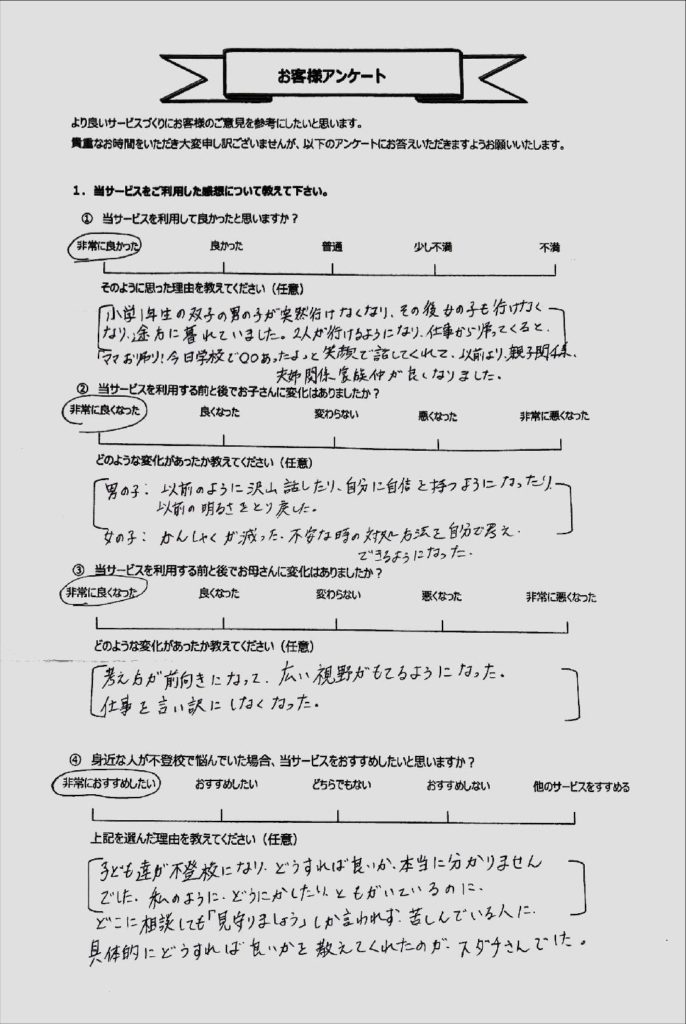 お客様アンケート
より良いサービスづくりにお客様のご意見を参考にしたいと思います。
貴重なお時間をいただき大変申し訳ございませんが、以下のアンケートにお答えいただきますようお願いいたします。
1．当サービスをご利用した感想について教えて下さい。
① 当サービスを利用して良かったと思いますか？
非常に良かった 良かった 普通 少し不満 不満
そのように思った理由を教えてください（任意）
小学1年生の双子の男の子が突然行けなくなり、その後女の子も行けなく
なり、途方に暮れていました。2人が行けるようになり、仕事から帰ってくると、
ママお帰り！今日学校で〇〇あったよっと笑顔で話してくれて、以前より、親子関係、
夫婦関係、家族仲が良くなりました。
② 当サービスを利用する前と後でお子さんに変化はありましたか？
非常に良くなった 良くなった 変わらない 悪くなった 非常に悪くなった
どのような変化があったか教えてください（任意）
男の子：以前のように沢山話したり、自分に自信を持つようになったり、
以前の明るさをとり戻した。
女の子：かんしゃくが減った、不安な時の対処方法を自分で考え、
できるようになった。
③ 当サービスを利用する前と後でお母さんに変化はありましたか？
非常に良くなった 良くなった 変わらない 悪くなった 非常に悪くなった
どのような変化があったか教えてください（任意）
考え方が前向きになって、広い視野がもてるようになった。
仕事を言い訳にしなくなった。
④ 身近な人が不登校で悩んでいた場合、当サービスをおすすめしたいと思いますか？
非常におすすめしたい おすすめしたい どちらでもない おすすめしない 他のサービスをすすめる
上記を選んだ理由を教えてください（任意）
子ども達が不登校になり、どうすれば良いか、本当に分かりません
でした。私のように、どうにかしたい、ともがいているのに、
どこに相談しても「見守りましょう」しか言われず、苦しんでいる人に、
具体的にどうすれば良いかを教えてくれたのが、スダチさんでした。